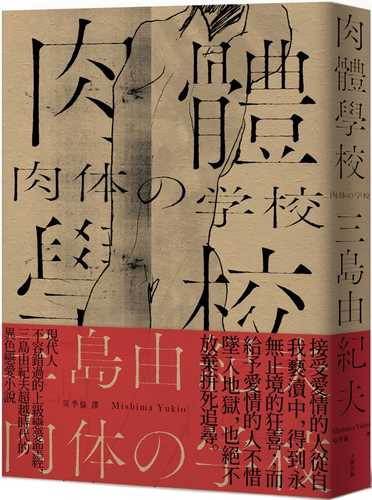 肉體學校
肉体の学校
三島由
吳季倫 譯
Mishima Yukio
肉体の学校
接受愛情的人從自
我褻瀆中，得到永
無止境的狂喜，而
給予愛情的人不惜
墜入地獄，也絕不
放棄拼死追尋。
現代人
不容錯過的上級戀愛聖經
三島由紀夫超越時代的
異色戀愛小說
肉體學校
肉体の学校
三島由紀夫
Mishima Yukio
吳季倫 譯